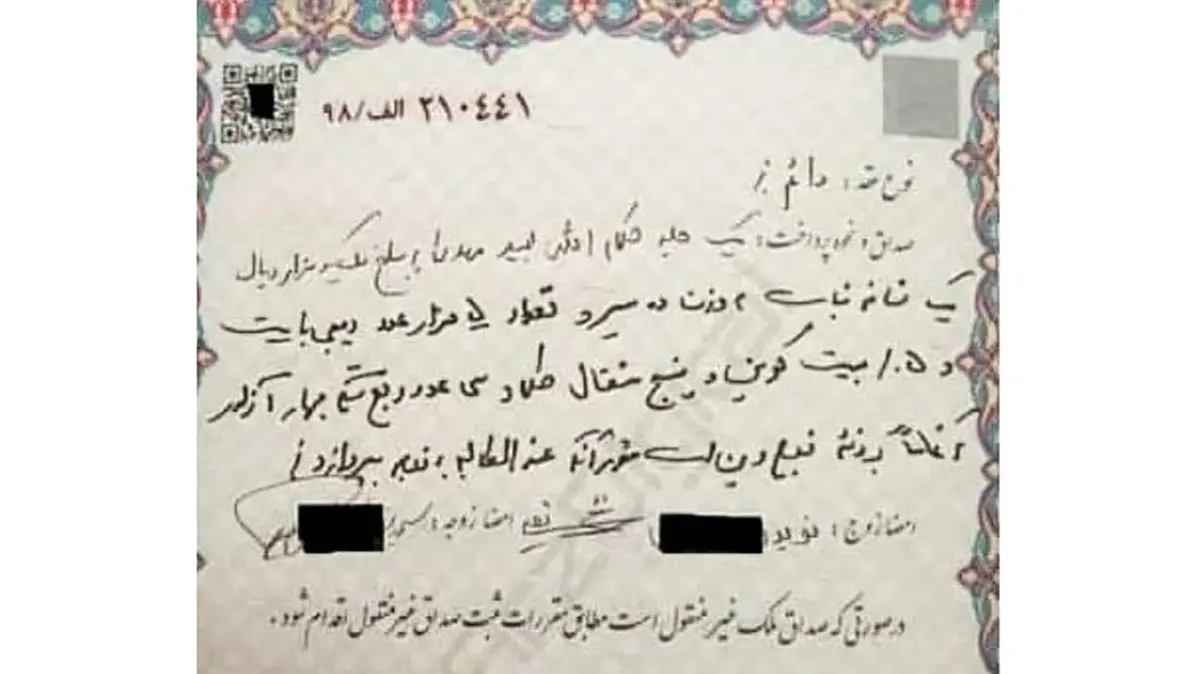 ۳۱۰۴۴۱ الف/۹۸
نوع عقد: دائم
صداق و نحوه پرداخت: یک جلد کلام الله مجید مهریه به مبلغ یکهزار ریال
یک شاخه نبات به وزن ده سیر و تعداد ۵ هزار عدد بیت
و ۰.۵ / بیت کوین و پنج مثقال طلا و سی عدد ربع سکه بهار آزادی
که تماماً بر ذمه زوج دین است عندالمطالبه به زوجه بپردازد
امضا زوج: نوید
امضا زوجه:
درصورتی که صداق ملک غیر منقول است مطابق مقررات ثبت صداق غیر منقول اقدام شود.